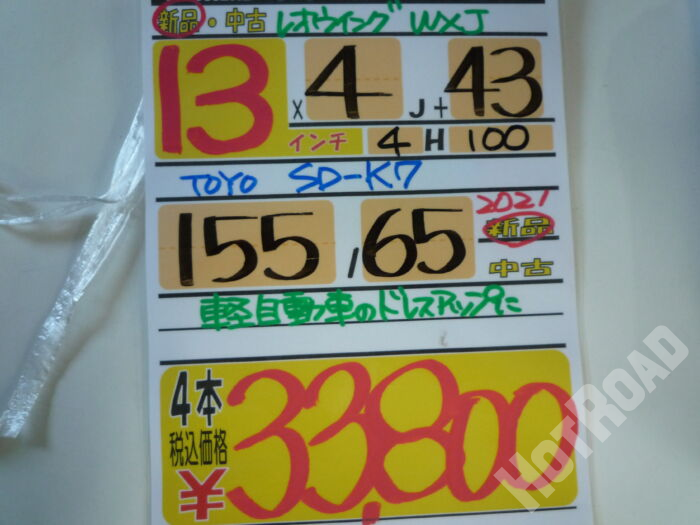 新品・中古 レオウイング WXJ
13 × 4 J + 43
インチ 4 H 100
TOYO SD-K7
155 / 65 2021 新品
中古
軽自動車のドレスアップに
4本 税込価格 ¥33,800
HotRoad